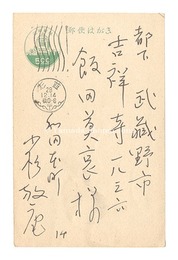 郵便はがき
都下 武蔵野市
吉祥寺一八三六
飯田莫哀様
和田本町
小杉放庵
14